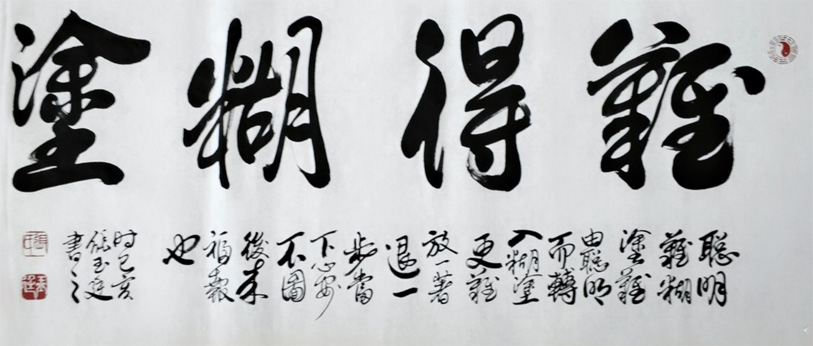 難得糊塗
聰明
難糊
塗難
由聰明
而轉
入糊塗
更難
放一著
退一
步當
下心安
不圖
後來
福報
也
時己亥
玉
書之